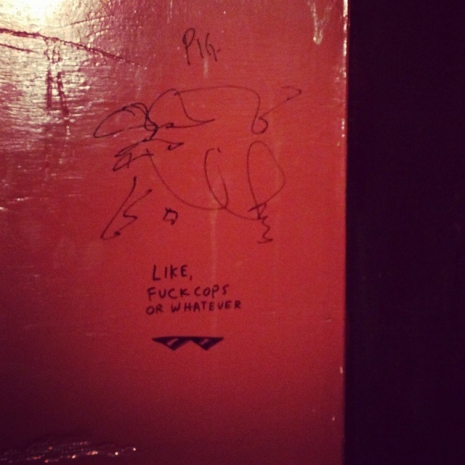 PIG.
LIKE,
FUCK COPS
OR WHATEVER